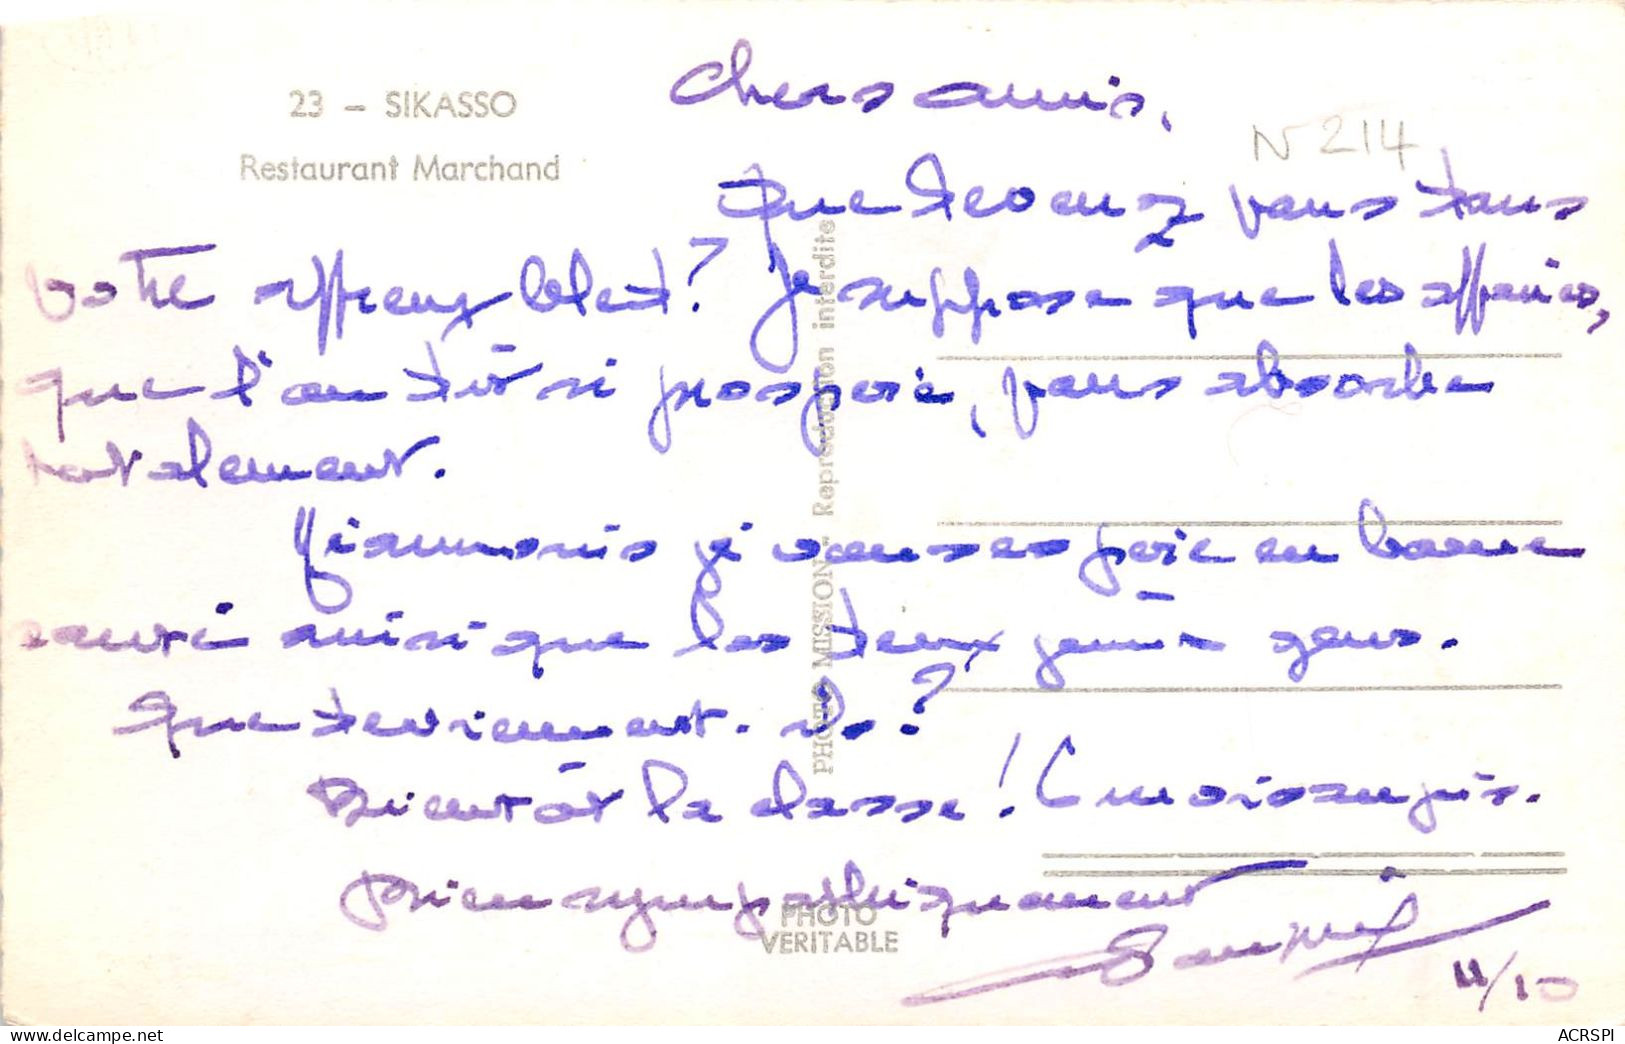 23 - SIKASSO
Restaurant Marchand
N 214
Chers amis,
Que devenez vous dans
votre affreux bled ? Je suppose que les affaires,
que l'on dit si prospère, vous absorbe
totalement.
Néanmoins je vous espère en bonne
santé ainsi que les deux jeunes gens.
Que deviennent-ils ?
Bientôt la classe ! 6 mois aujour.
Bien sympathiquement
11/10
PHOTO MISSION - Reproduction interdite
PHOTO
VERITABLE
delcampe.net
ACRSPI